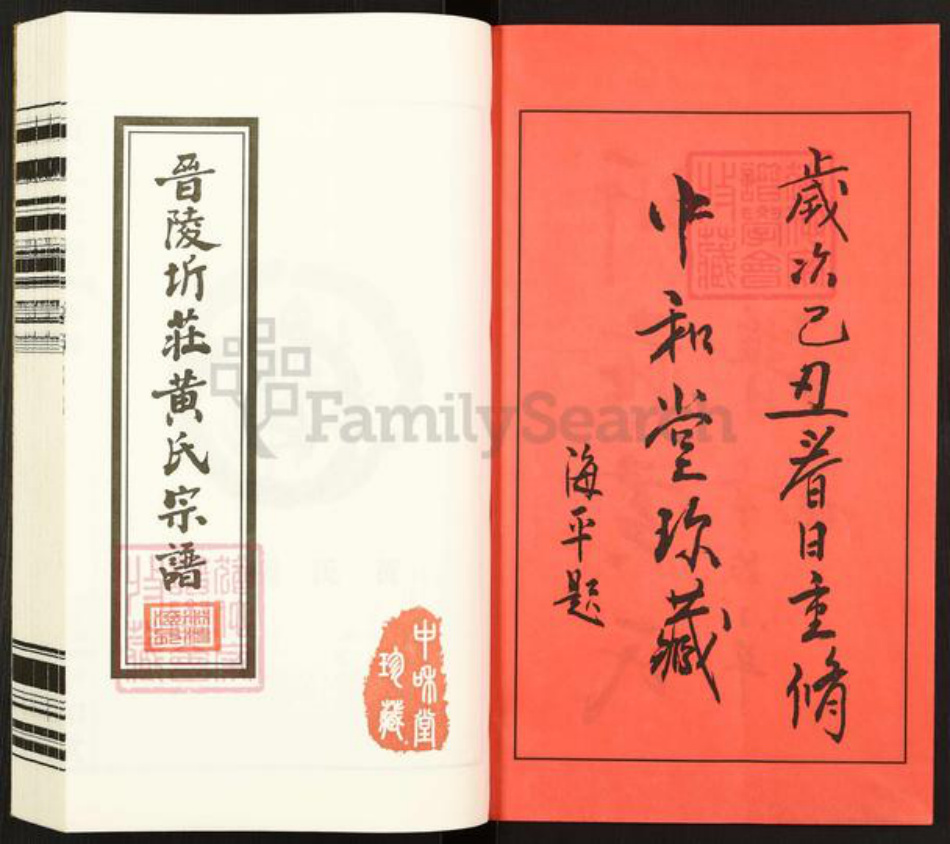 歲次己丑春日重修
中和堂珍藏
海平題
晉陵圻莊黃氏宗譜
中和堂
珍藏
FamilySearch